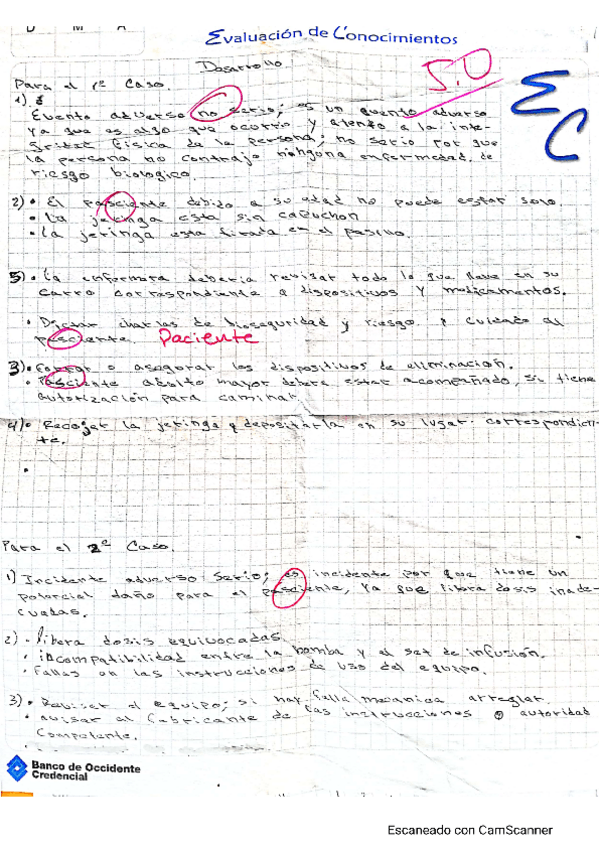 D M A
Evaluación de Conocimientos
Desarrollo.
5.0
EC
Para el 1er Caso.
1)
Evento adverso no serio; es un evento adverso
ya que es algo que ocurrio y atento a la inte-
gritat fisica de la persona; no serio por que
la persona no contrajo ninguna enfermedad, de
riesgo biologico.
2) • El pasciente debido a su edad no puede estar solo.
• La jeringa esta sin capuchon
• La jeringa esta tirada en el pasillo.
5) • La enfermera deberia revisar todo lo que lleve en su
carro correspondiente a dispositivos y medicamentos.
• charlas de bioseguridad y riesgo. y cuidado al
pasciente. Paciente
3) • o asegorar los dispositivos de eliminacion.
• Pasciente adulto mayor debera estar acompañado, si tiene
autorización para caminar
4) • Recojer la jeringa y depositarla en su lugar correspondien-
te.
Para el 2º Caso.
1) Incidente adverso serio; es incidente por que tiene un
potencial daño para el pasciente, ya que libera dosis inade-
cuadas.
2) • libera dosis equivocadas.
• incompatibilidad entre la bomba y el set de infusión.
• Fallas en las instrucciones de uso del equipo.
3) • Revisar el equipo; si hay falla mecanica arreglar.
• avisar al fabricante de las instrucciones o autoridad
Competente.
Banco de Occidente
Credencial
Escaneado con CamScanner